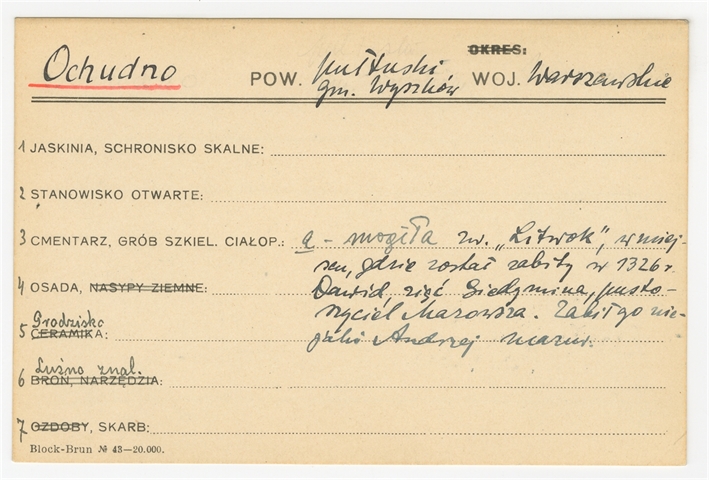 Ochudno
OKRES:
POW. pułtuski WOJ. Warszawskie
gm. Wyszków
1 JASKINIA, SCHRONISKO SKALNE:
2 STANOWISKO OTWARTE:
3 CMENTARZ, GRÓB SZKIEL. CIAŁOP.: a - mogiła zw. „Litwok", w miej-
scu, gdzie został zabity w 1326 r.
4 OSADA, NASYPY ZIEMNE: Dawid zięć Giedymina, pusto-
szyciel Mazowsza. Zabił go nie-
Grodzisko
5 CERAMIKA: jaki Andrzej mazur.
Luźno znal.
6 BROŃ, NARZĘDZIA:
7 OZDOBY, SKARB:
Block-Brun № 43—20.000.